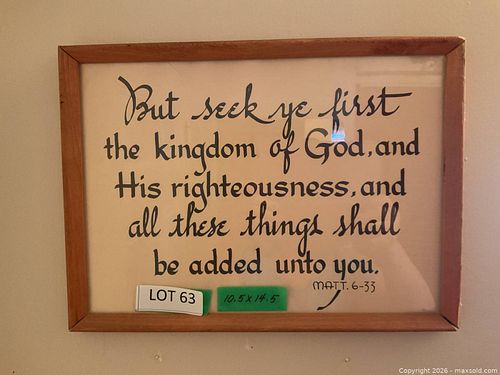 But seek ye first
the kingdom of God, and
His righteousness, and
all these things shall
be added unto you.
MATT. 6-33
LOT 63
10.5 x 14.5
Copyright 2026 - maxsold.com